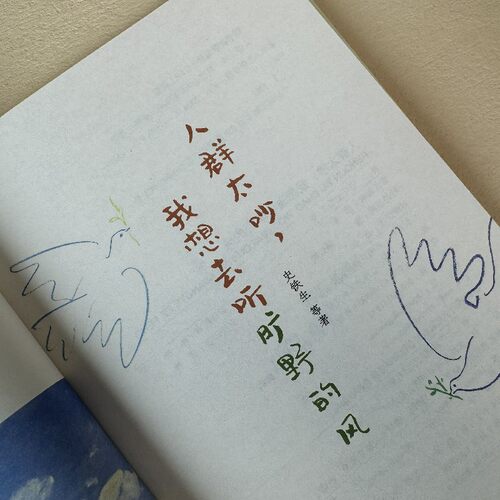 人群太吵，
我想去听旷野的风
史铁生等著